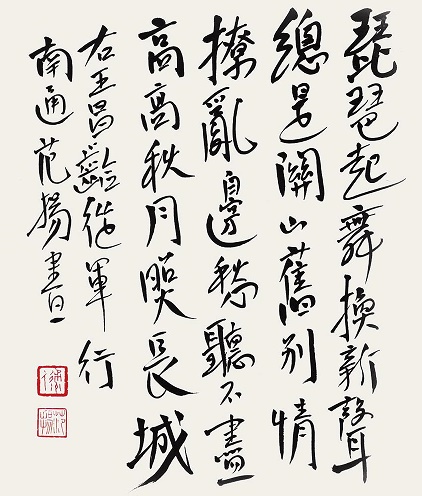 琵琶起舞換新聲
總是關山舊別情
撩亂邊愁聽不盡
高高秋月照長城
右王昌齡從軍行
南通范揚書